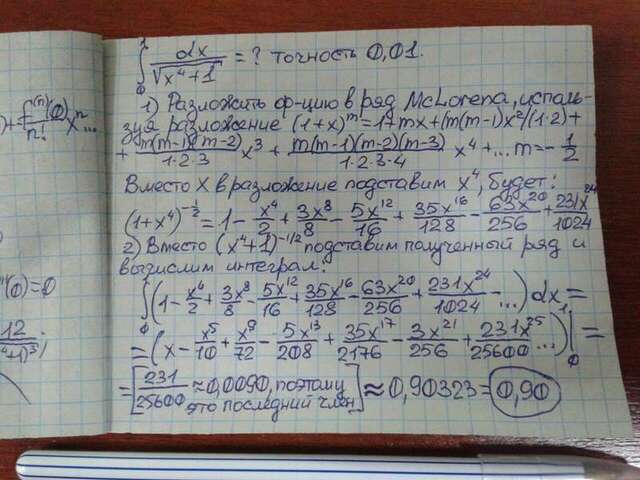 )+ f⁽ⁿ⁾(0)/n! xⁿ...
"(0)=0
12
⁴+1)³;
∫₀¹ dx/√(x⁴+1) = ? точность 0,01.
1) Разложить ф-цию в ряд McLorena, исполь-
зуя разложение (1+x)ᵐ=1+mx+(m(m-1)x²/(1·2)+
+ m(m-1)(m-2)/(1·2·3) x³ + m(m-1)(m-2)(m-3)/(1·2·3·4) x⁴ +... m=-1/2
Вместо X в разложение подставим x⁴, будет:
(1+x⁴)^(-1/2) = 1 - x⁴/2 + 3x⁸/8 - 5x¹²/16 + 35x¹⁶/128 - 63x²⁰/256 + 231x²⁴/1024
2) Вместо (x⁴+1)^(-1/2) подставим полученный ряд и
вычислим интеграл:
∫₀¹ (1 - x⁴/2 + 3x⁸/8 - 5x¹²/16 + 35x¹⁶/128 - 63x²⁰/256 + 231x²⁴/1024 - ...) dx =
= (x - x⁵/10 + x⁹/72 - 5x¹³/208 + 35x¹⁷/2176 - 3x²¹/256 + 231x²⁵/25600 ...)|₀¹ =
= [231/25600 ≈ 0,0090, поэтому это последний член] ≈ 0,90323 = 0,90